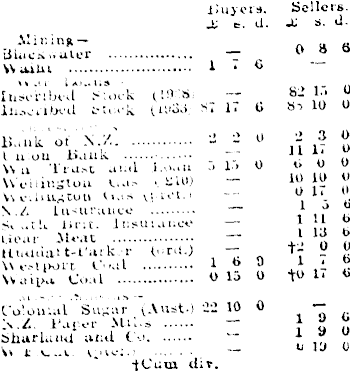 Buyers. Sellers.
£ s. d. £ s. d.
Mining—
Blackwater ............ — 0 8 6
Waihi ............ 1 7 6 —
War Loans—
Inscribed Stock (1938) — 82 15 0
Inscribed Stock (1933) 87 17 6 88 10 0
Bank of N.Z. ......... 2 2 0 2 3 0
Union Bank ......... — 11 17 0
Wn Trust and Loan 5 15 0 6 0 0
Wellington Gas (£10) — 10 10 0
Wellington Gas (pref.) — 0 17 0
N.Z. Insurance ......... — 1 5 6
South Brit. Insurance — 1 11 6
Gear Meat ......... — 1 13 6
Huddart-Parker (ord.) — †2 0 0
Westport Coal ......... 1 6 9 1 7 6
Waipa Coal ......... 0 15 0 †0 17 6
Colonial Sugar (Aust.) 22 10 0 —
N.Z. Paper Mills ...... — 1 9 6
Sharland and Co. ...... — 1 9 0
(pref.) ...... — 0 19 0
†Cum div.